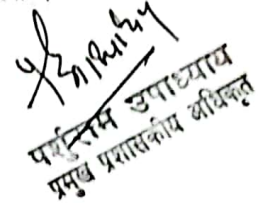 पर्शुराम उपाध्याय
प्रमुख प्रशासकीय अधिकृत